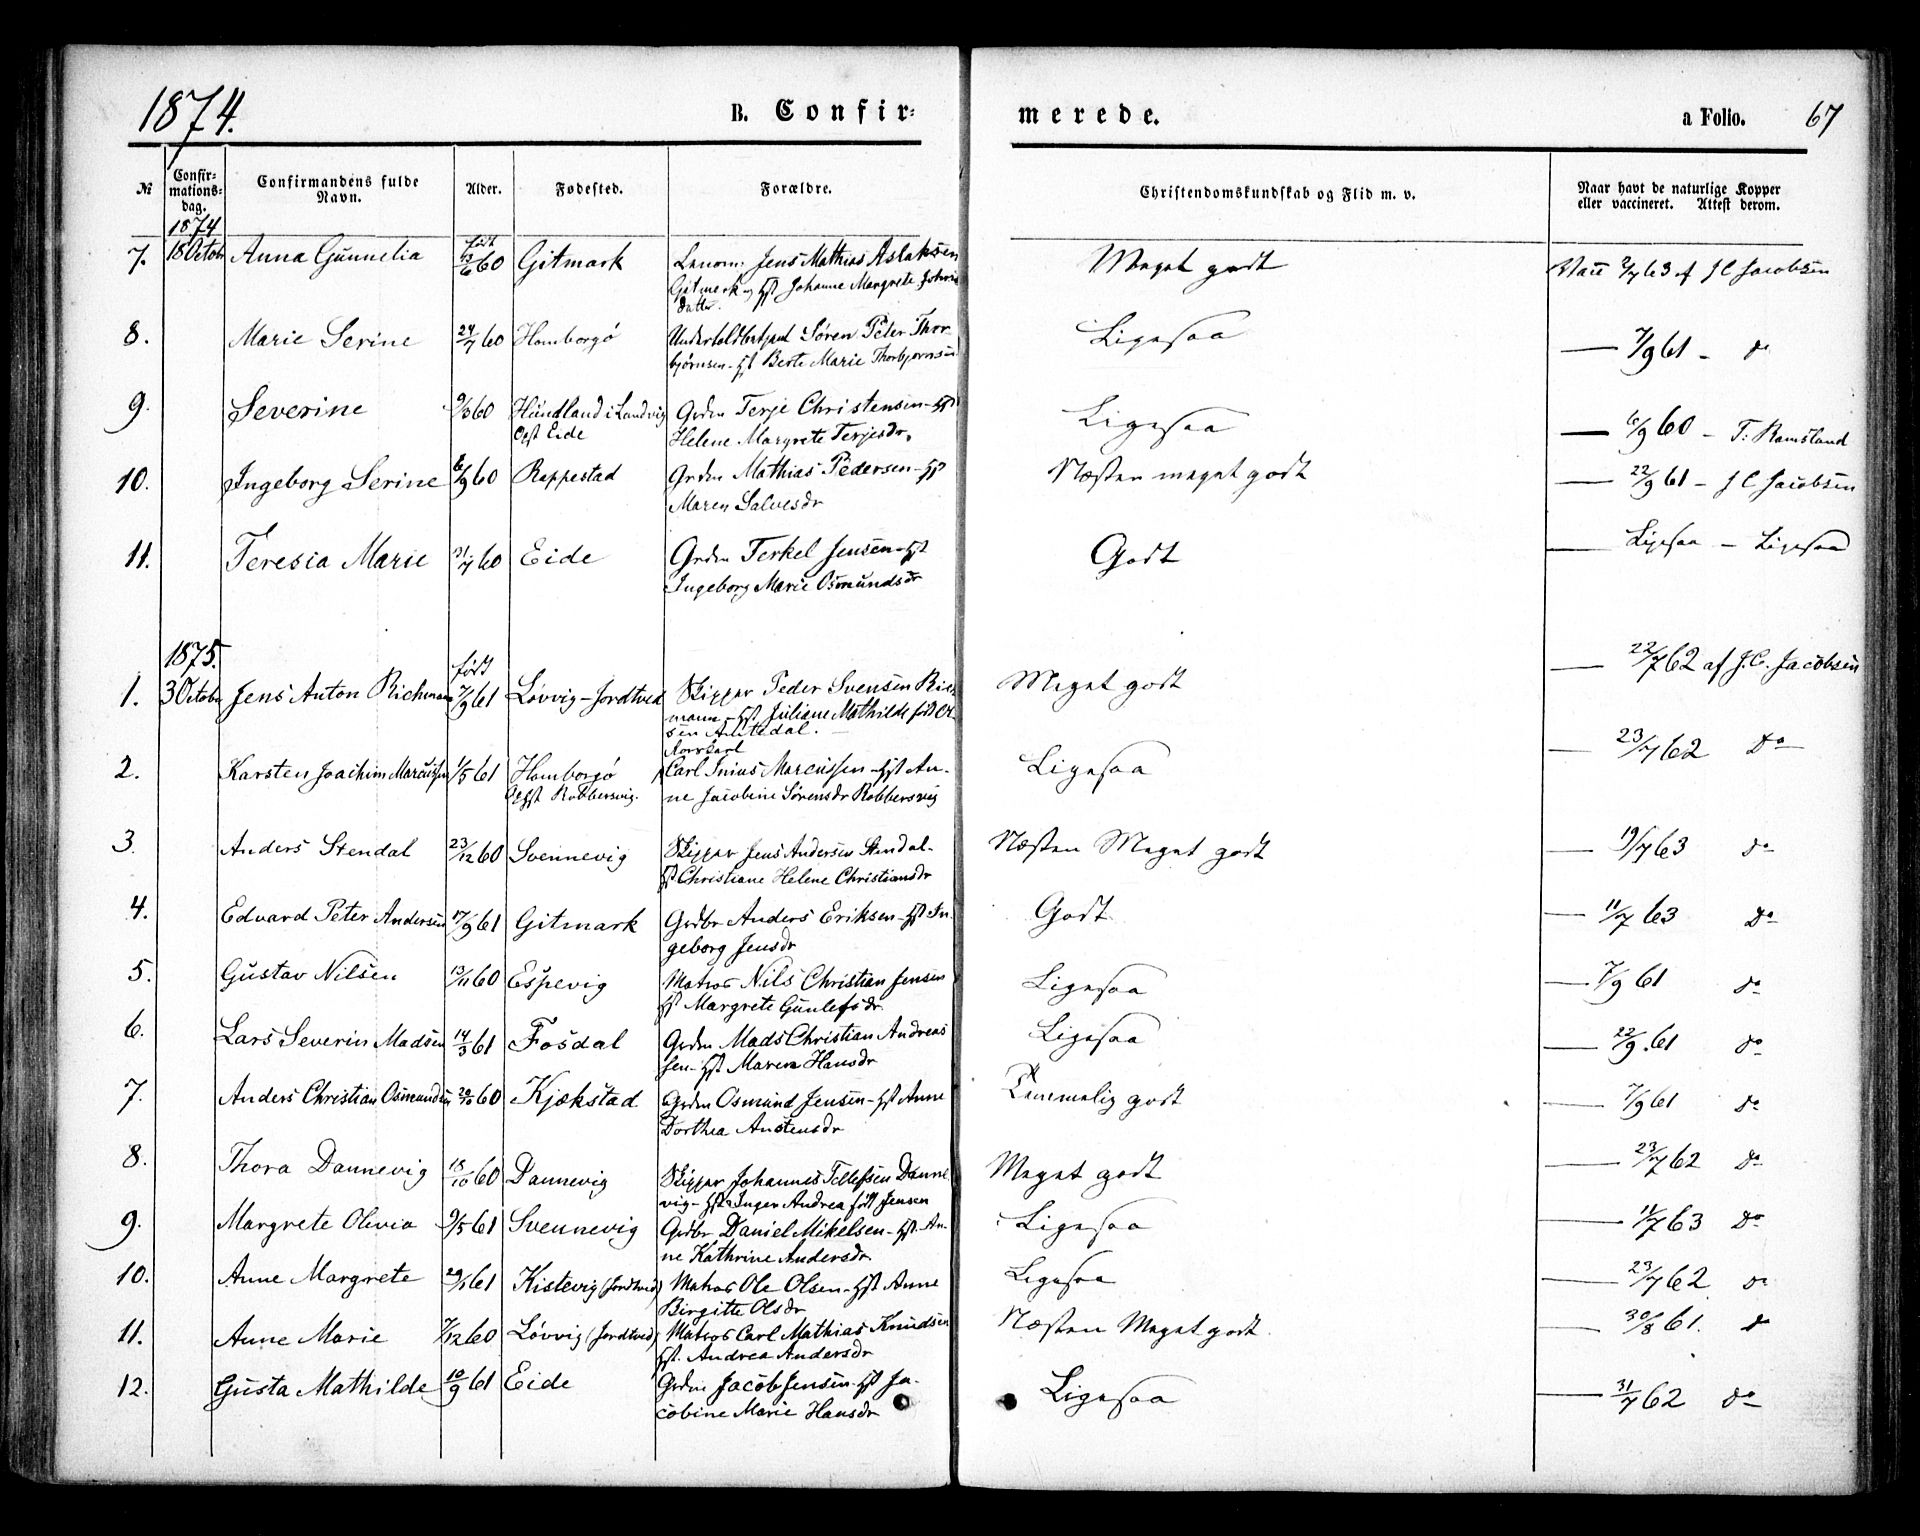 1874.
B. Confir=
merede.
a Folio. 67
№
Confir-
mations-
dag.
Confirmandens fulde
Navn.
Alder.
Fødested.
Forældre.
Christendomskundskab og Flid m. v.
Naar havt de naturlige Kopper
eller vaccineret. Attest derom.
1874
7. 18 Octob Anna Gunnelia født 13/6 60 Gitmark Jens Mathias Aslaksen Meget godt Vacc 2/7 63 af J C Jacobsen
Gitmark og Hst Johanne Margrete
datter.
8. Marie Serine 24/7 60 Homborgö Søren Peter Thor- Ligesaa 7/9 61 - do
bjørnsen - Hst Berte Marie Thorbjørnsen
9. Severine 9/3 60 Hundland i Landvig Grdm Terje Christensen - Hst Ligesaa 6/9 60 - T. Ramsland
Opst Eide Helene Margrete Terjesdr.
10. Ingeborg Serine 6/9 60 Reppestad Grdm Mathias Pedersen - Hst Næsten meget godt 22/9 61 - J C Jacobsen
Maren Salvesdr
11. Teresia Marie 31/7 60 Eide Grdm Terkel Jensen - Hst Godt Ligesaa - Ligesaa
Ingeborg Marie Osmundsdr
1875.
1. 3 Octobr Jens Anton Richmann født 7/9 61 Lövvig - Jordtved Skipper Peder Svensen Rich Meget godt 22/7 62 af J. C. Jacobsen
mann - Hst Juliane Mathilde født Ol-
sen Amtedal.
2. Karsten Joachim Marcussen 1/5 61 Homborgö Carl Inius Marcussen - Hst An- Ligesaa 23/7 62 Do
Opfst Robbersvig. ne Jacobine Sørensdr Robbersvig
3. Anders Stendal 23/12 60 Svennevig Skipper Jens Andersen Stendal - Næsten Meget godt 19/7 63 do
Hst Christiane Helene Christiansdr
4. Edvard Peter Andersen 17/9 61 Gitmark Grdbr Anders Eriksen - Hst In- Godt 11/7 63 Do
geborg Jensdr
5. Gustav Nilsen 13/11 60 Espevig Matros Nils Christian Jensen Ligesaa 7/9 61 do
Hst Margrete Gunlefsdr.
6. Lars Severin Madsen 14/3 61 Fosdal Grdm Mads Christian Andreas Ligesaa 22/9 61 do
sen - Hst Maren Hansdr
7. Anders Christian Osmundsen 20/10 60 Kjækstad Grdm Osmund Jensen - Hst Anne Temmelig godt 7/9 61 do
Dorthea Austensdr
8. Thora Dannevig 18/10 60 Dannevig Skipper Johannes Tellefsen Danne Meget godt 23/7 62 do
vig - Hst Inger Andrea født Jensen
9. Margrete Olivia 9/5 61 Svennevig Grdbr Daniel Mikelsen - Hst An- Ligesaa 11/7 63 Do
ne Kathrine Andersdr
10. Anne Margrete 29/1 61 Kistevig (Jordtved) Matros Ole Olsen - Hst Anne Ligesaa 23/7 62 do
Birgitte Olsdr
11. Anne Marie 7/12 60 Lövvig (Jordtved) Matros Carl Mathias Knudsen Næsten Meget godt. 30/8 61. do
Hst. Andrea Andersdr
12. Gusta Mathilde 10/9 61 Eide Grdm Jacob Jensen - Hst Ja- Ligesaa 31/7 62 do
cobine Marie Hansdr